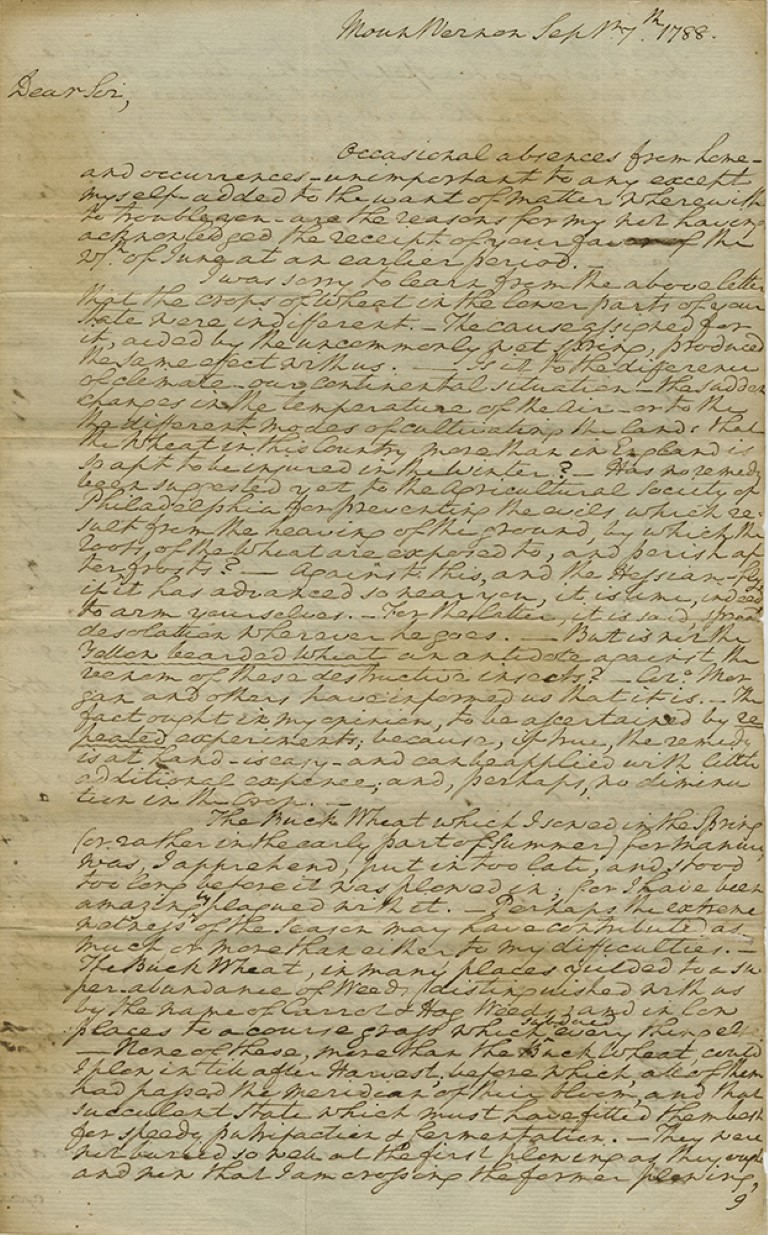 Mount Vernon Sepbr. 7th. 1788.
Dear Sir,
Occasional absences from home—
and occurrences—unimportant to any except
myself—added to the want of matter wherewith
to trouble you—are the reasons for my not having
acknowledged the receipt of your favor of the
of June at an earlier period.—
I was sorry to learn from the above letter
that the crops of Wheat in the lower parts of your
State were indifferent.—The cause assigned for
it, aided by the uncommonly wet spring, produced
the same efect with us.—Is it to the difference
of climate—our continental situation—the sudden
changes in the temperature of the Air—or to the
the different modes of cultivating the land; that
the Wheat in this Country more than in England is
so apt to be injured in the Winter?—Has no remedy
been suggested yet to the Agricultural Society of
Philadelphia for preventing the evils which re-
sult from the heaving of the ground, by which the
roots, of the Wheat are exposed to, and perish af
ter frosts?—Against this, and the Hessian-fly,
if it has advanced so near you, it is time, indeed,
to arm yourselves.—For the latter, it is said, spreads
desolation wherever he goes.—But is not the
Yellow bearded Wheat an antidote against the
venom of these destructive insects?—Colo. Mor
gan and others have informed us that it is.—The
fact ought in my opinion, to be ascertained by re
peated experiments; because, if true, the remedy
is at hand—is easy—and can be applied with little
additional expence; and, perhaps, no diminu
tion in the Crop.—
The Buck Wheat which I sowed in the Spring
(or rather in the early part of Summer) for manure,
was, I apprehend, put in too late, and stood
too long before it was plowed in; for I have been
amazingly plagued with it.—Perhaps the extreme
wetness of the season may have contributed as
much or more than either to my difficulties.—
The Buck Wheat, in many places yielded to a su
per-abundance of Weeds (distinguished with us
by the name of Carrot & Hog Weeds) and in low
places to a course grass which subdued every thing else
—None of these, more than the Buck Wheat, could
I plow in till after Harvest, before which, all of them
had passed the meridian of their bloom, and that
succulent state which must have fitted them best
for speedy putrifaction & fermentation.—They were
not buried so well at the first plowing as they ought
and now that I am crossing the former plowing,
9